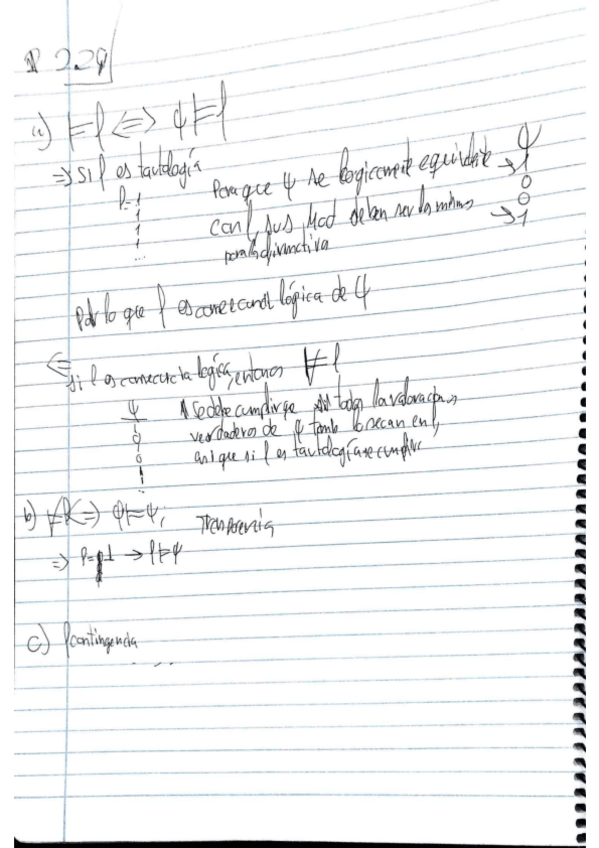 2.29
a) ⊨φ ⇔ ψ⊨φ
⇒ si φ es tautología
φ=1
1
1
1
1
...
Para que ψ se logicamente equivalente
con φ, sus Mod deben ser los mismos
para
ψ
→ 1
0
0
→ 1
Por lo que φ es consecuencia lógica de ψ
⇐
si φ es consecuencia logica, entonces ⊨ φ
ψ
1
0
0
1
1
..
se debe cumplir que todas las valoraciones
verdaderas de ψ también lo sean en φ,
así que si φ es tautología se cumple
b) φ⊨ψ,
⇒ φ⊨ψ
c) φ contingencia
...